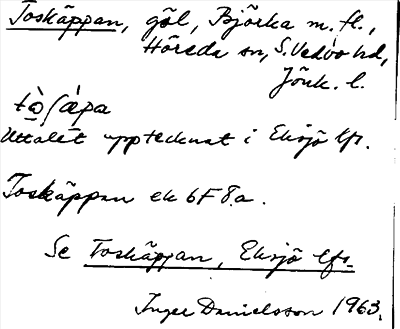 Toskäppan, göl, Björka m. fl.,
Höreda sn, S. Vedbo hd,
Jönk. l.
tò̱ʃápa
Uttalet upptecknat i Eksjö lfs.
Toskäppan ek 6F 8a.
Se Toskäppan, Eksjö lfs.
Inger Danielsson 1963.